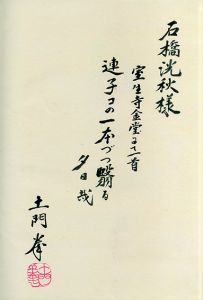 石橋洸秋様
室生寺金堂に一首
連子コの一本づつ翳る
夕日哉
土門拳